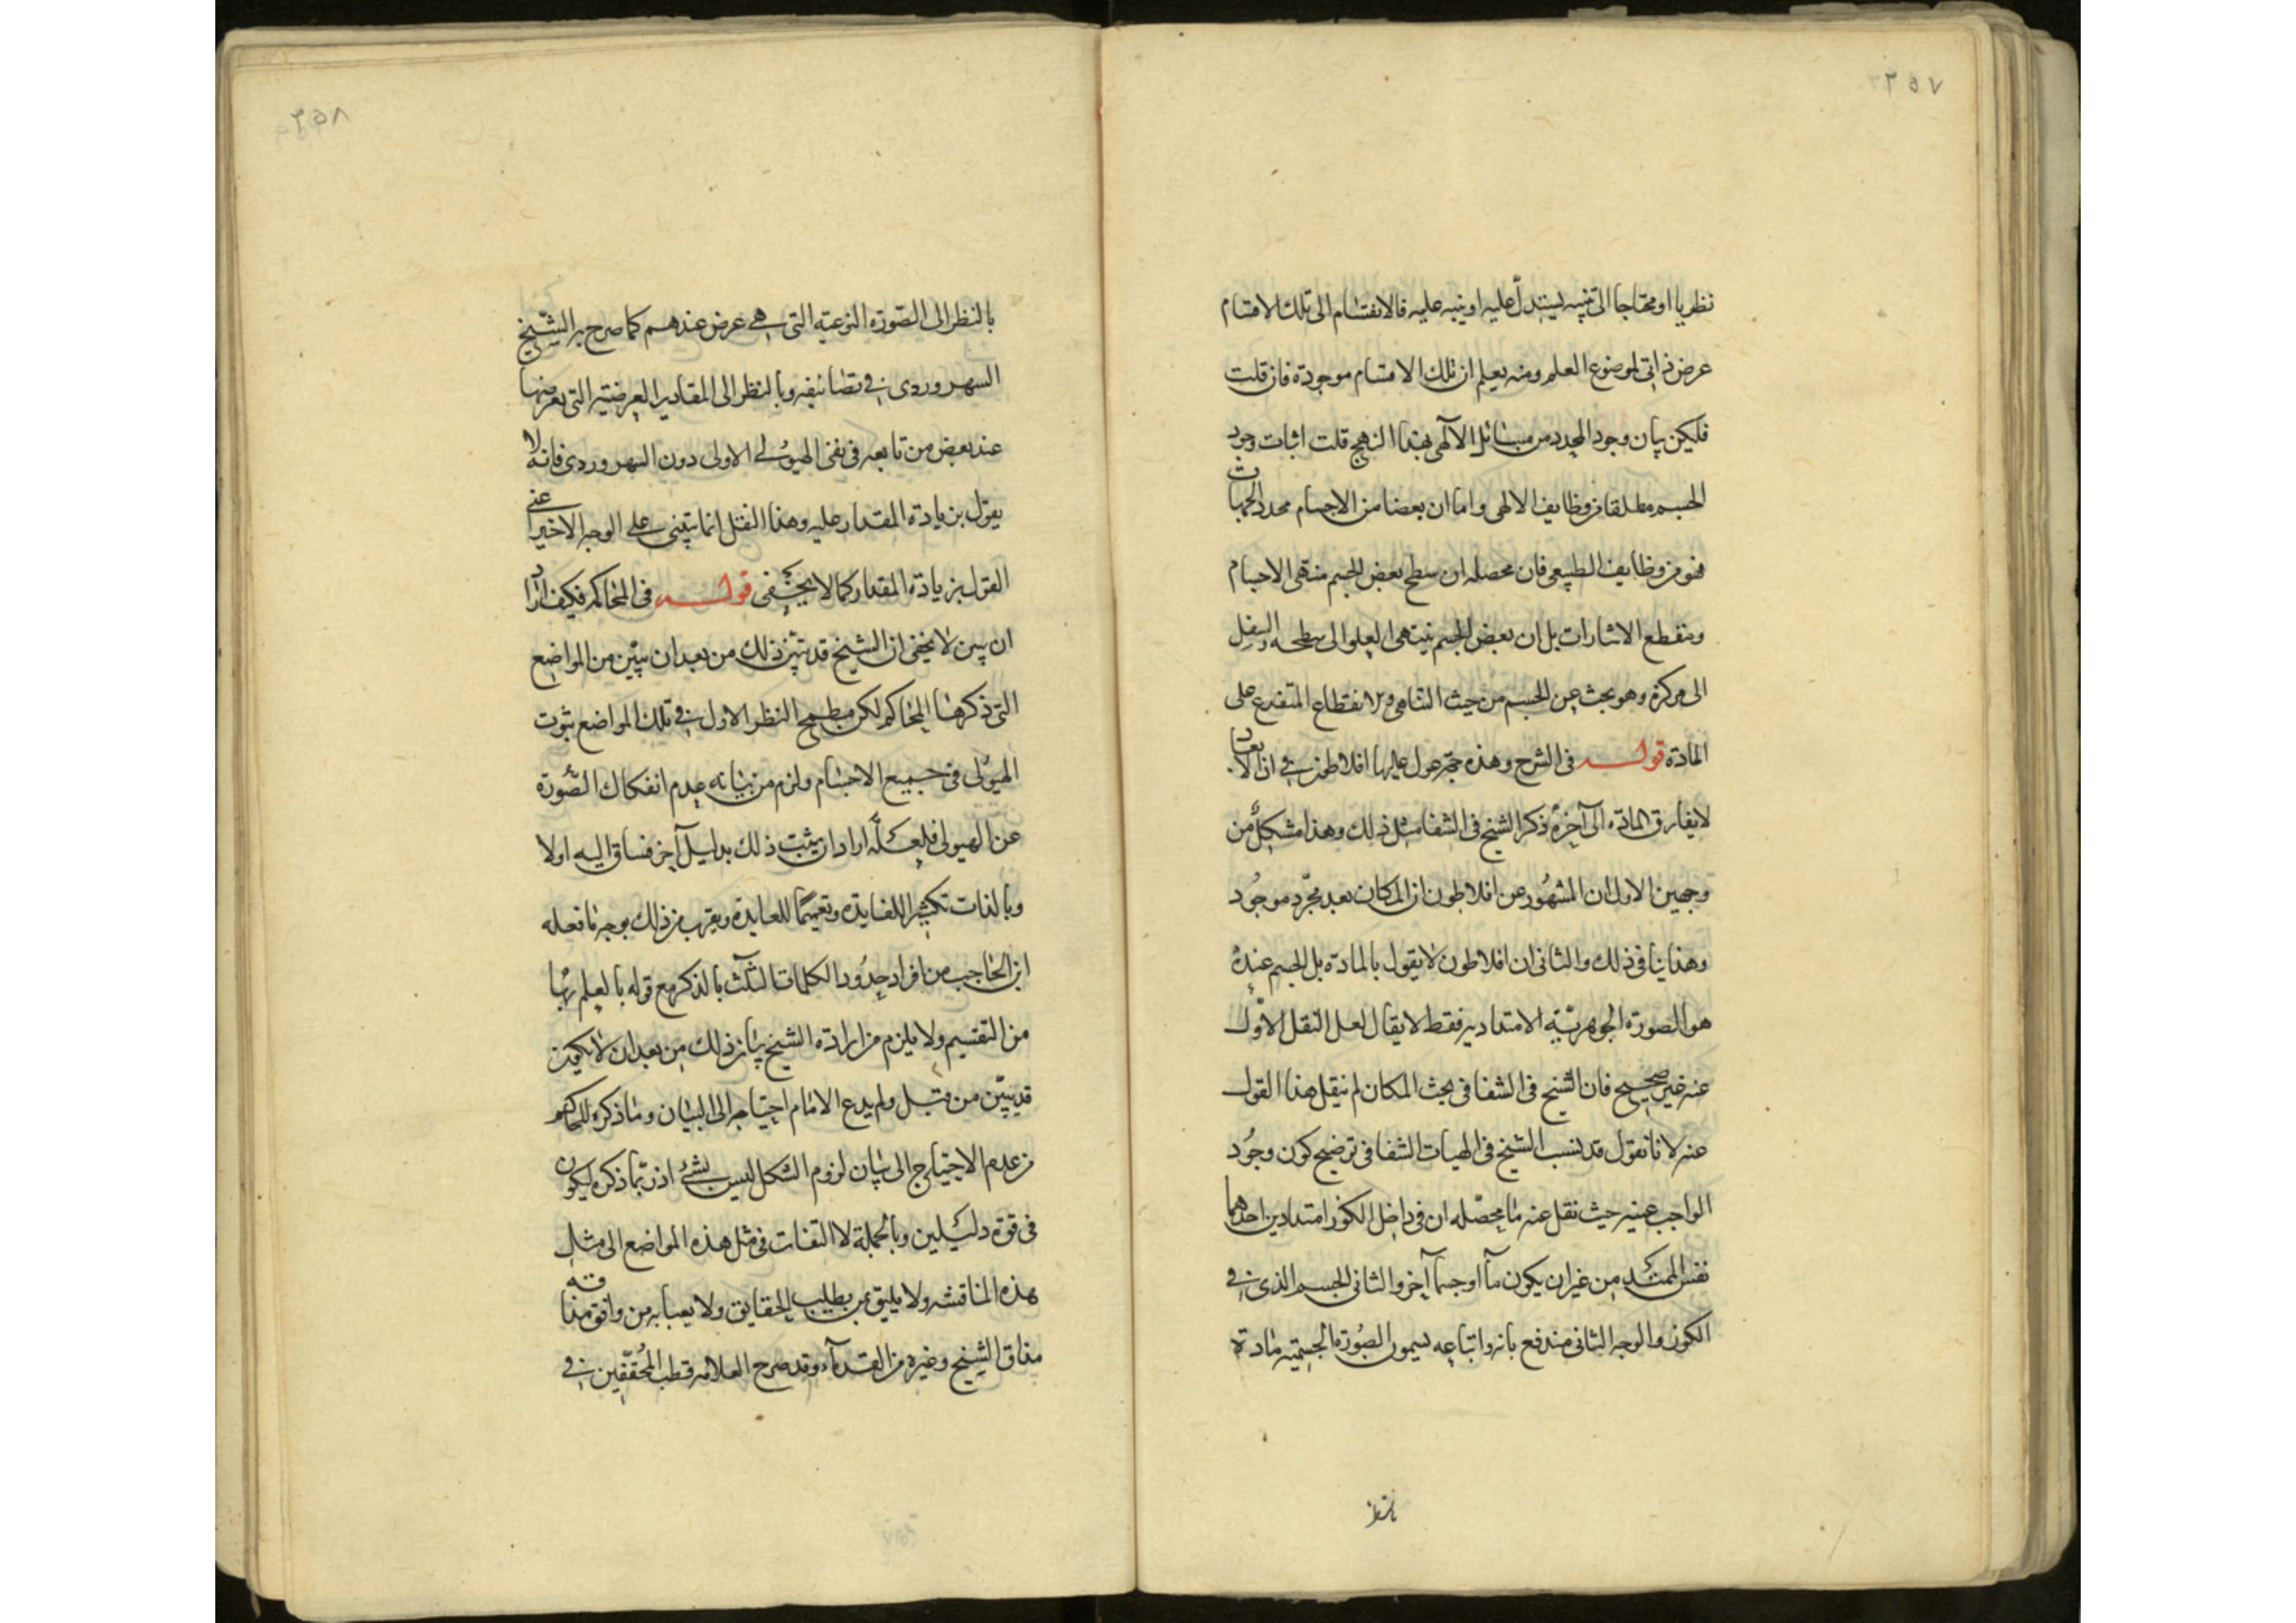 ٢٥٧
نظريا او محتاجا الى تنبيه يستدل عليه او ينبه عليه فالانقسام الى تلك الاقسام
عرض ذاتى لموضوع العلم ومنه يعلم ان تلك الاقسام موجودة فان قلت
فليكن بيان وجود المحدد من مسائل الآلهى بهذا النهج قلت اثبات وجود
الجسم مطلقا من وظايف الالهى واما ان بعضا من الاجسام محدد الجهات
فهو من وظايف الطبيعى فان محصله ان سطح بعض الجسم منتهى الاجسام
ومنقطع الاشارات بل ان بعض الجسم ينتهى العلو الى سطحه والسفل
الى مركزه وهو بحث عن الجسم من حيث التناهى والانقطاع المتفرع على
المادة قوله فى الشرح وهذه حجة عول عليها افلاطون فى ان الابعاد
لا يفارق المادة الى آخره ذكر الشيخ فى الشفا مثل ذلك وهذا مشكل من
وجهين الاول ان المشهور عن افلاطون ان المكان بعد مجرد موجود
وهذا ينافى ذلك والثانى ان افلاطون لا يقول بالمادة بل الجسم عنده
هو الصورة الجوهرية الامتدادية فقط لا يقال لعل النقل الاول
عنه غير صحيح فان الشيخ فى الشفا فى بحث المكان لم ينقل هذا القول
عنه لانا نقول قد نسب الشيخ فى الهيات الشفا فى توضيح كون وجود
الواجب عينه حيث نقل عنه ما محصله ان فى داخل الكوز امتدادين احدهما
نفس الممتد من غير ان يكون مآا وجسما آخر والثانى الجسم الذى فى
الكوز والوجه الثانى مندفع بانه واتباعه يسمون الصورة الجسمية مادة
بالنظر
٢٥٨
بالنظر الى الصورة النوعية التى هى عرض عندهم كما صرح به الشيخ
السهروردى فى تصانيفه وبالنظر الى المقادير العرضية التى يعرضها
عند بعض من تابعه فى نفى الهيولى الاولى دون السهروردى فانه لا
يقول بزيادة المقدار عليه وهذا النقل انما يبتنى على الوجه الاخير اعنى
القول بزيادة المقدار كما لا يخفى قوله فى المحاكم فكيف اراد
ان يبين لا يخفى ان الشيخ قد تبين ذلك من بعد ان يبين من المواضع
التى ذكرها المحاكم لكن مطمح النظر الاول فى تلك المواضع ثبوت
الهيولى فى جميع الاجسام ولزم من بيانه عدم انفكاك الصورة
عن الهيولى فلعله اراد ان يثبت ذلك بدليل آخر فساق اليه اولا
وبالذات تكثيرا للفايدة وتعميما للعايدة ويقرب من ذلك بوجه ما فعله
ابن الحاجب من افراد حدود الكلمات الثلث بالذكر مع قوله بالعلم بها
من التقسيم ولا يلزم من ارادة الشيخ بيان ذلك من بعد ان لا يكون
قد تبين من قبل ولم يدع الامام احتياجه الى البيان وما ذكره المحاكم
من عدم الاحتياج الى بيان لزوم الشكل ليس بشئ اذ ربما ذكره ليكون
فى قوة دليلين وبالجملة لا التفات فى مثل هذه المواضع الى مثل
هذه المناقشه ولا يليق بمن يطلب الحقايق ولا يعبا به من وافق مذاقه
مذاق الشيخ وغيره من القدمآء وقد صرح العلامه قطب المحققين فى